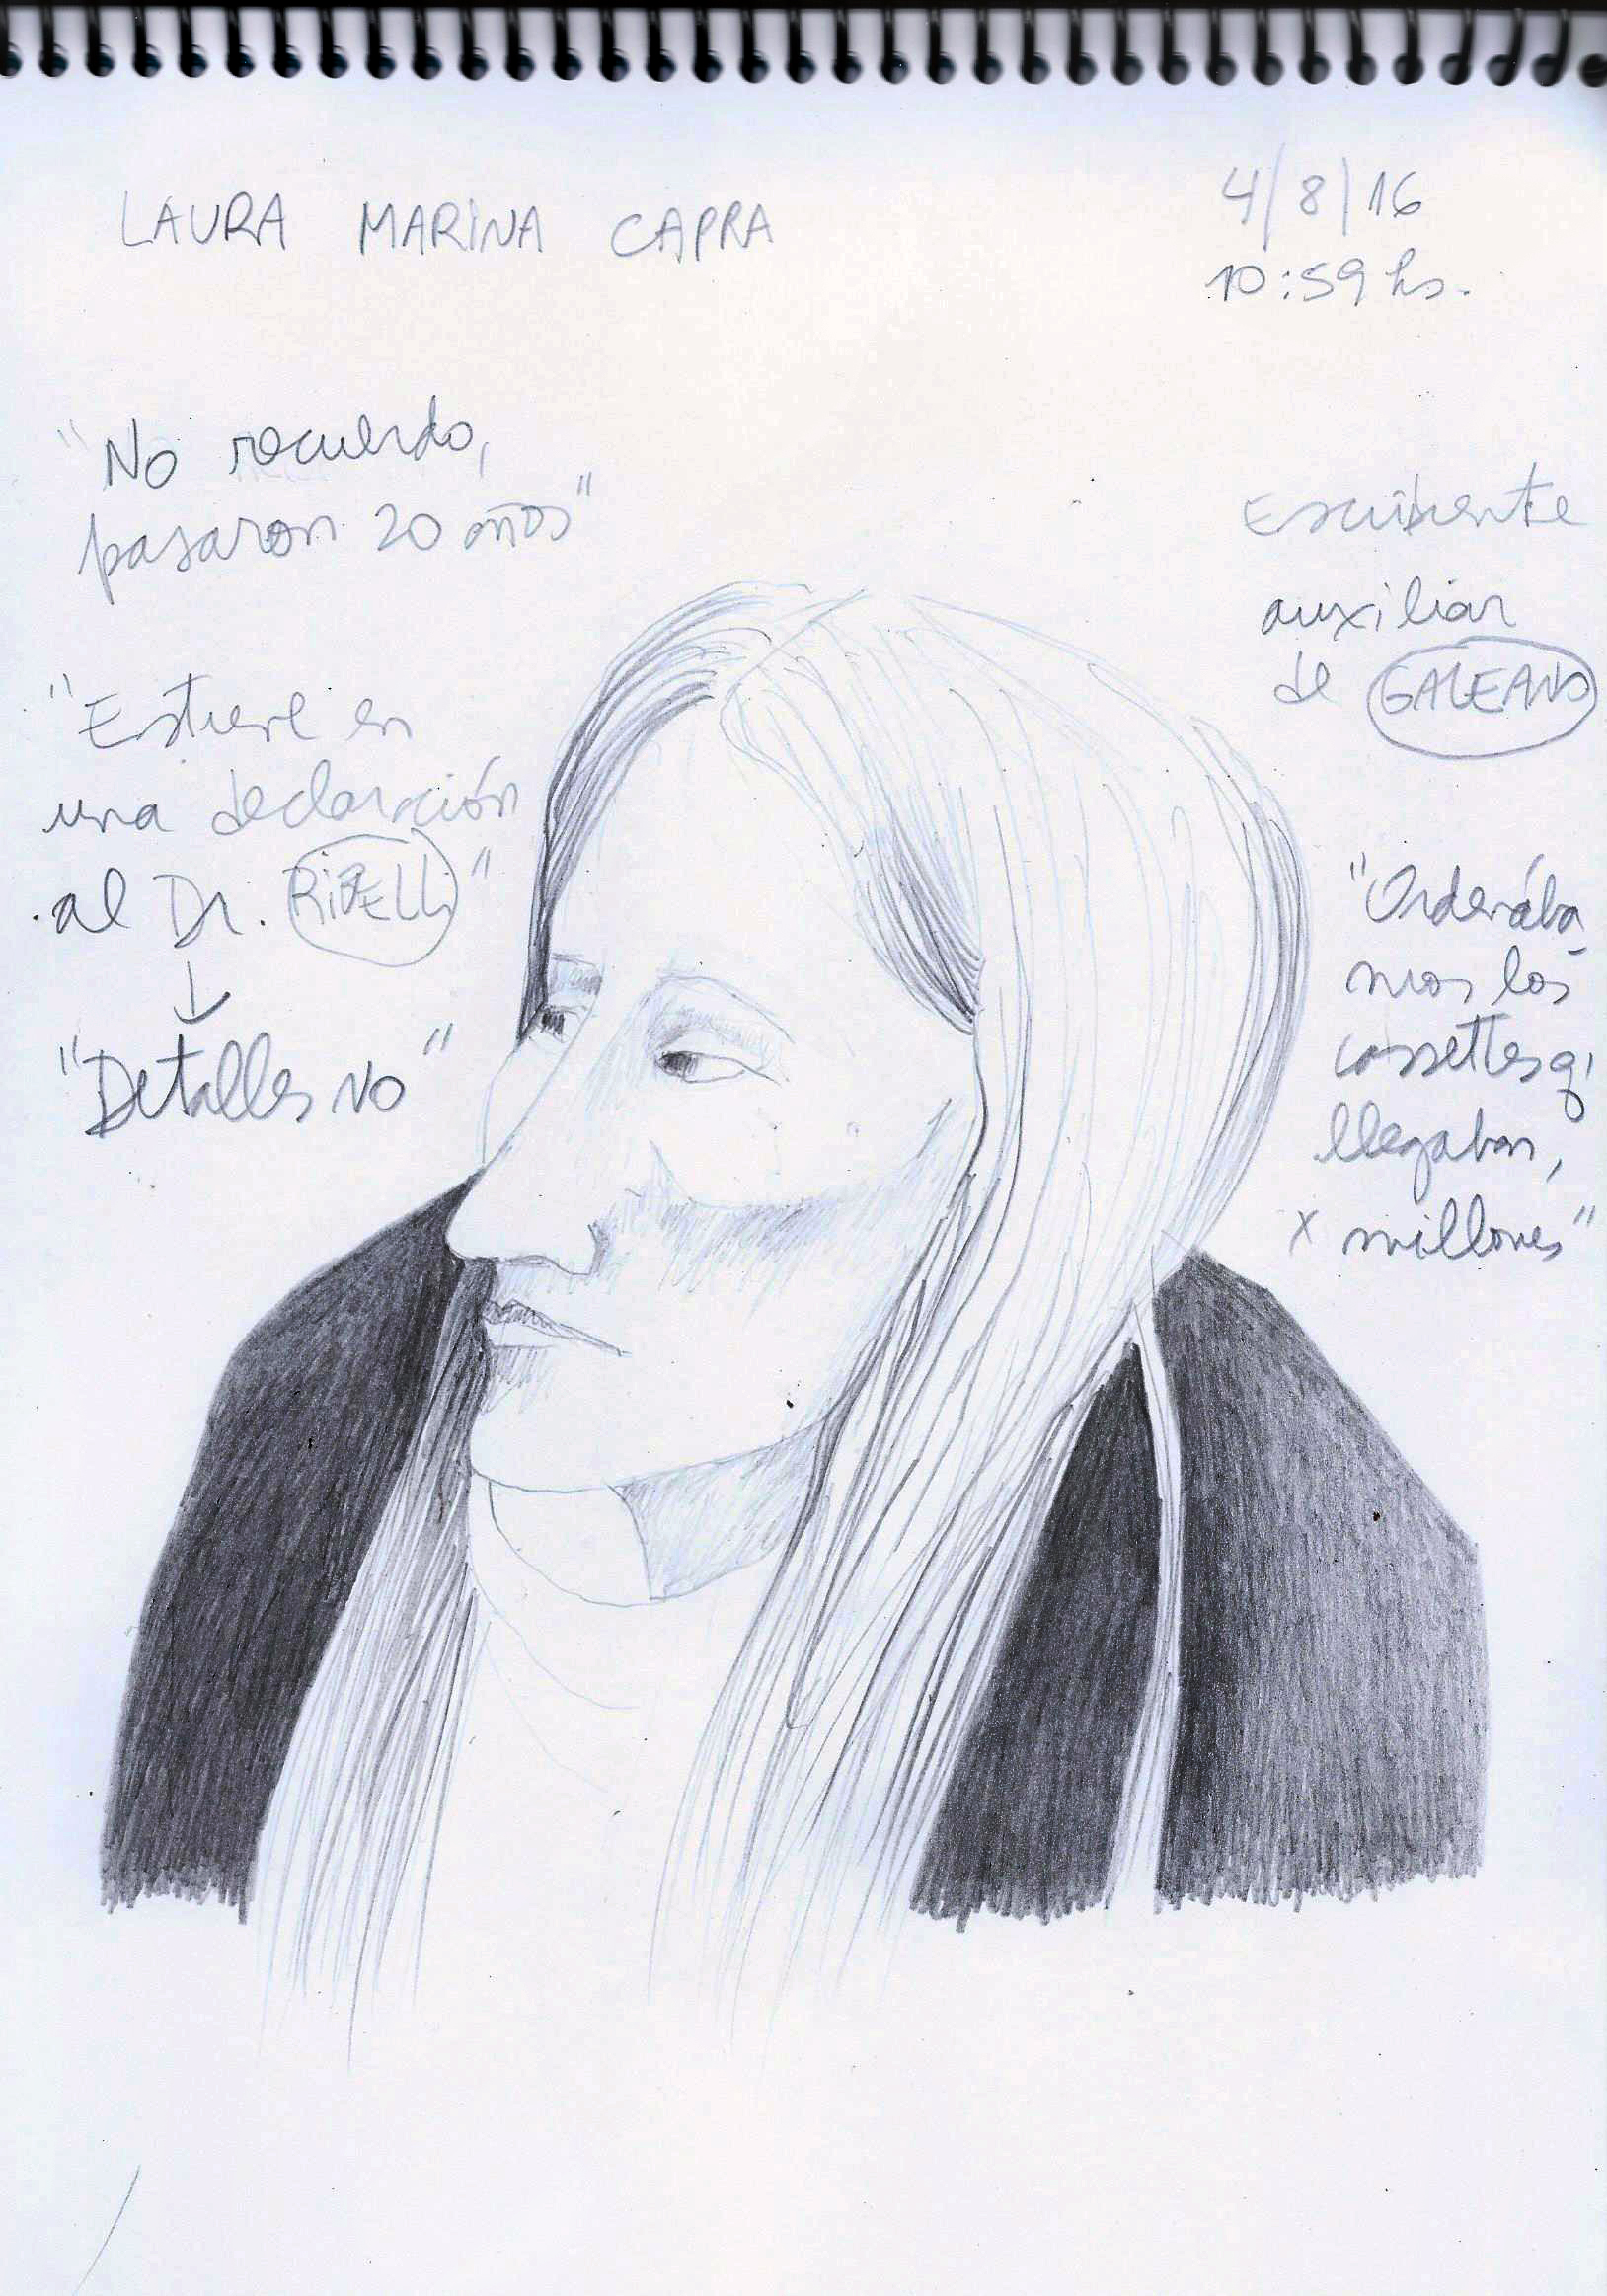 LAURA MARINA CAPRA
4/8/16
10:59 hs.
"No recuerdo,
pasaron 20 años"
"Estuve en
una declaración
al Dr. RIBELLI"
"Detalles no"
Escribiente
auxiliar
de GALEANO
"Ordenába
mos los
cassettes q'
llegaban,
x millones"